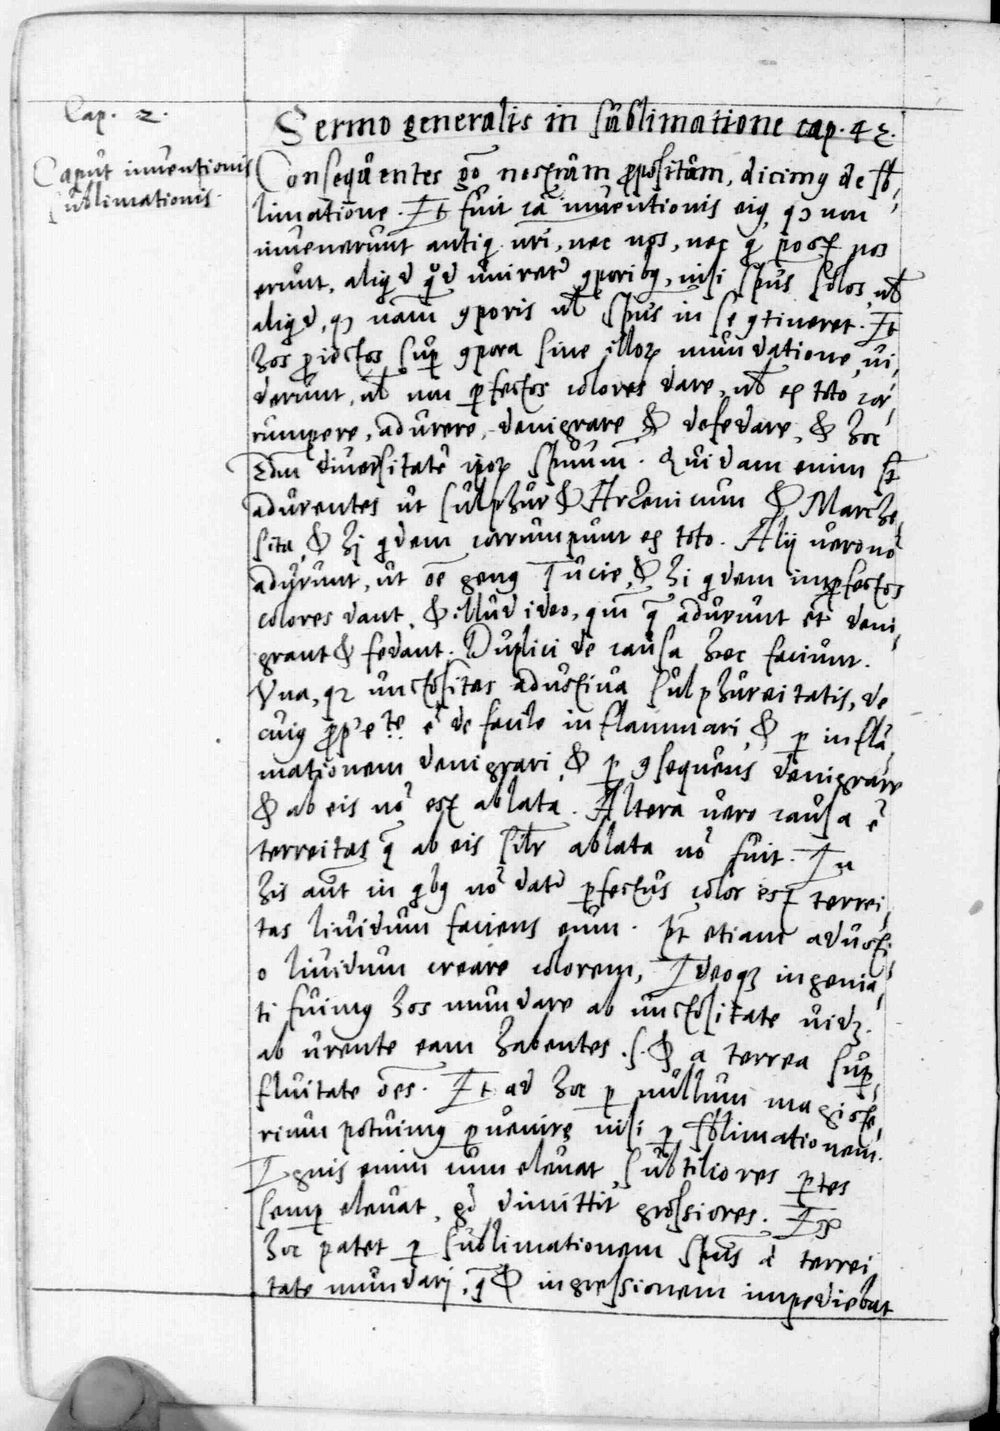 Cap. 2.
Caput inventionis
sublimationis.
Sermo generalis in sublimatione cap. 42.
Consequentes gō nostrum ꝓpositum, dicimꝰ de sb̄,
limatione. Et fuit cā inventionis eiꝰ, ꝙ non
invenerunt antiqͥ nr̄i, nec nos, nec qͥ post nos
erunt, aliqͥd qͦd uniretᷣ ꝯporibꝰ, nisi sp̄us solos, ul̄
aliqͥd, ꝙ nām ꝯporis ul̄ sp̄us in se ꝯtineret. Et
hos ꝓiectos suꝑ ꝯpora sine illoꝝ mundatione, vi,
derunt, ul̄ non ꝑfectos colores dare, ul̄ ex toto cor,
rumpere, adurere, denigrare & defedare, & hoc
scd̄m diversitatē ipoꝝ spūum. Quidam enim st̄
adurentes ut sulphur & Arzenicum & Marche,
sita, & hi qͥdem corrumpunt ex toto. Alij vero nō
adurunt, ut oē genꝰ Tucie, & hi qͥdem imꝑfectos
colores dant, & illud ideo, qm̄ qͣ adurunt et deni,
grant & fedant. Duplici de causa hoc faciunt.
Una, qꝛ unctositas adustiva sulphureitatis, de
cuiꝰ ꝓp'ete ē de facile inflammari, & ꝑ infla,
mationem denigrari, & ꝑ ꝯsequens denigrare
& ab eis nō est ablata. Altera vero causa ē
terreitas qͣ ab eis sil̄r ablata nō fuit. In
his aut̄ in qͥbꝰ nō datᷣ ꝑfectus color est terrei,
tas lividum faciens eum. pt̄ etiam adusti,
o lividum creare colorem, Ideoqꝫ ingenia,
ti fuimꝰ hos mundare ab unctositate vidꝫ.
ab urente eam habentes .s. & a terrea suꝑ,
fluitate oēs. Et ad hoc ꝑ nullum magiste,
rium potuimꝰ ꝑvenire nisi ꝑ sb̄limationem.
Ignis enim cum elevat, subtiliores ꝑtes
semꝑ elevat, gͦ dimittit grossiores. Ex
hoc patet ꝑ sublimationem sp̄us à terrei,
tate mundari, q̄ & ingressionem impediebat